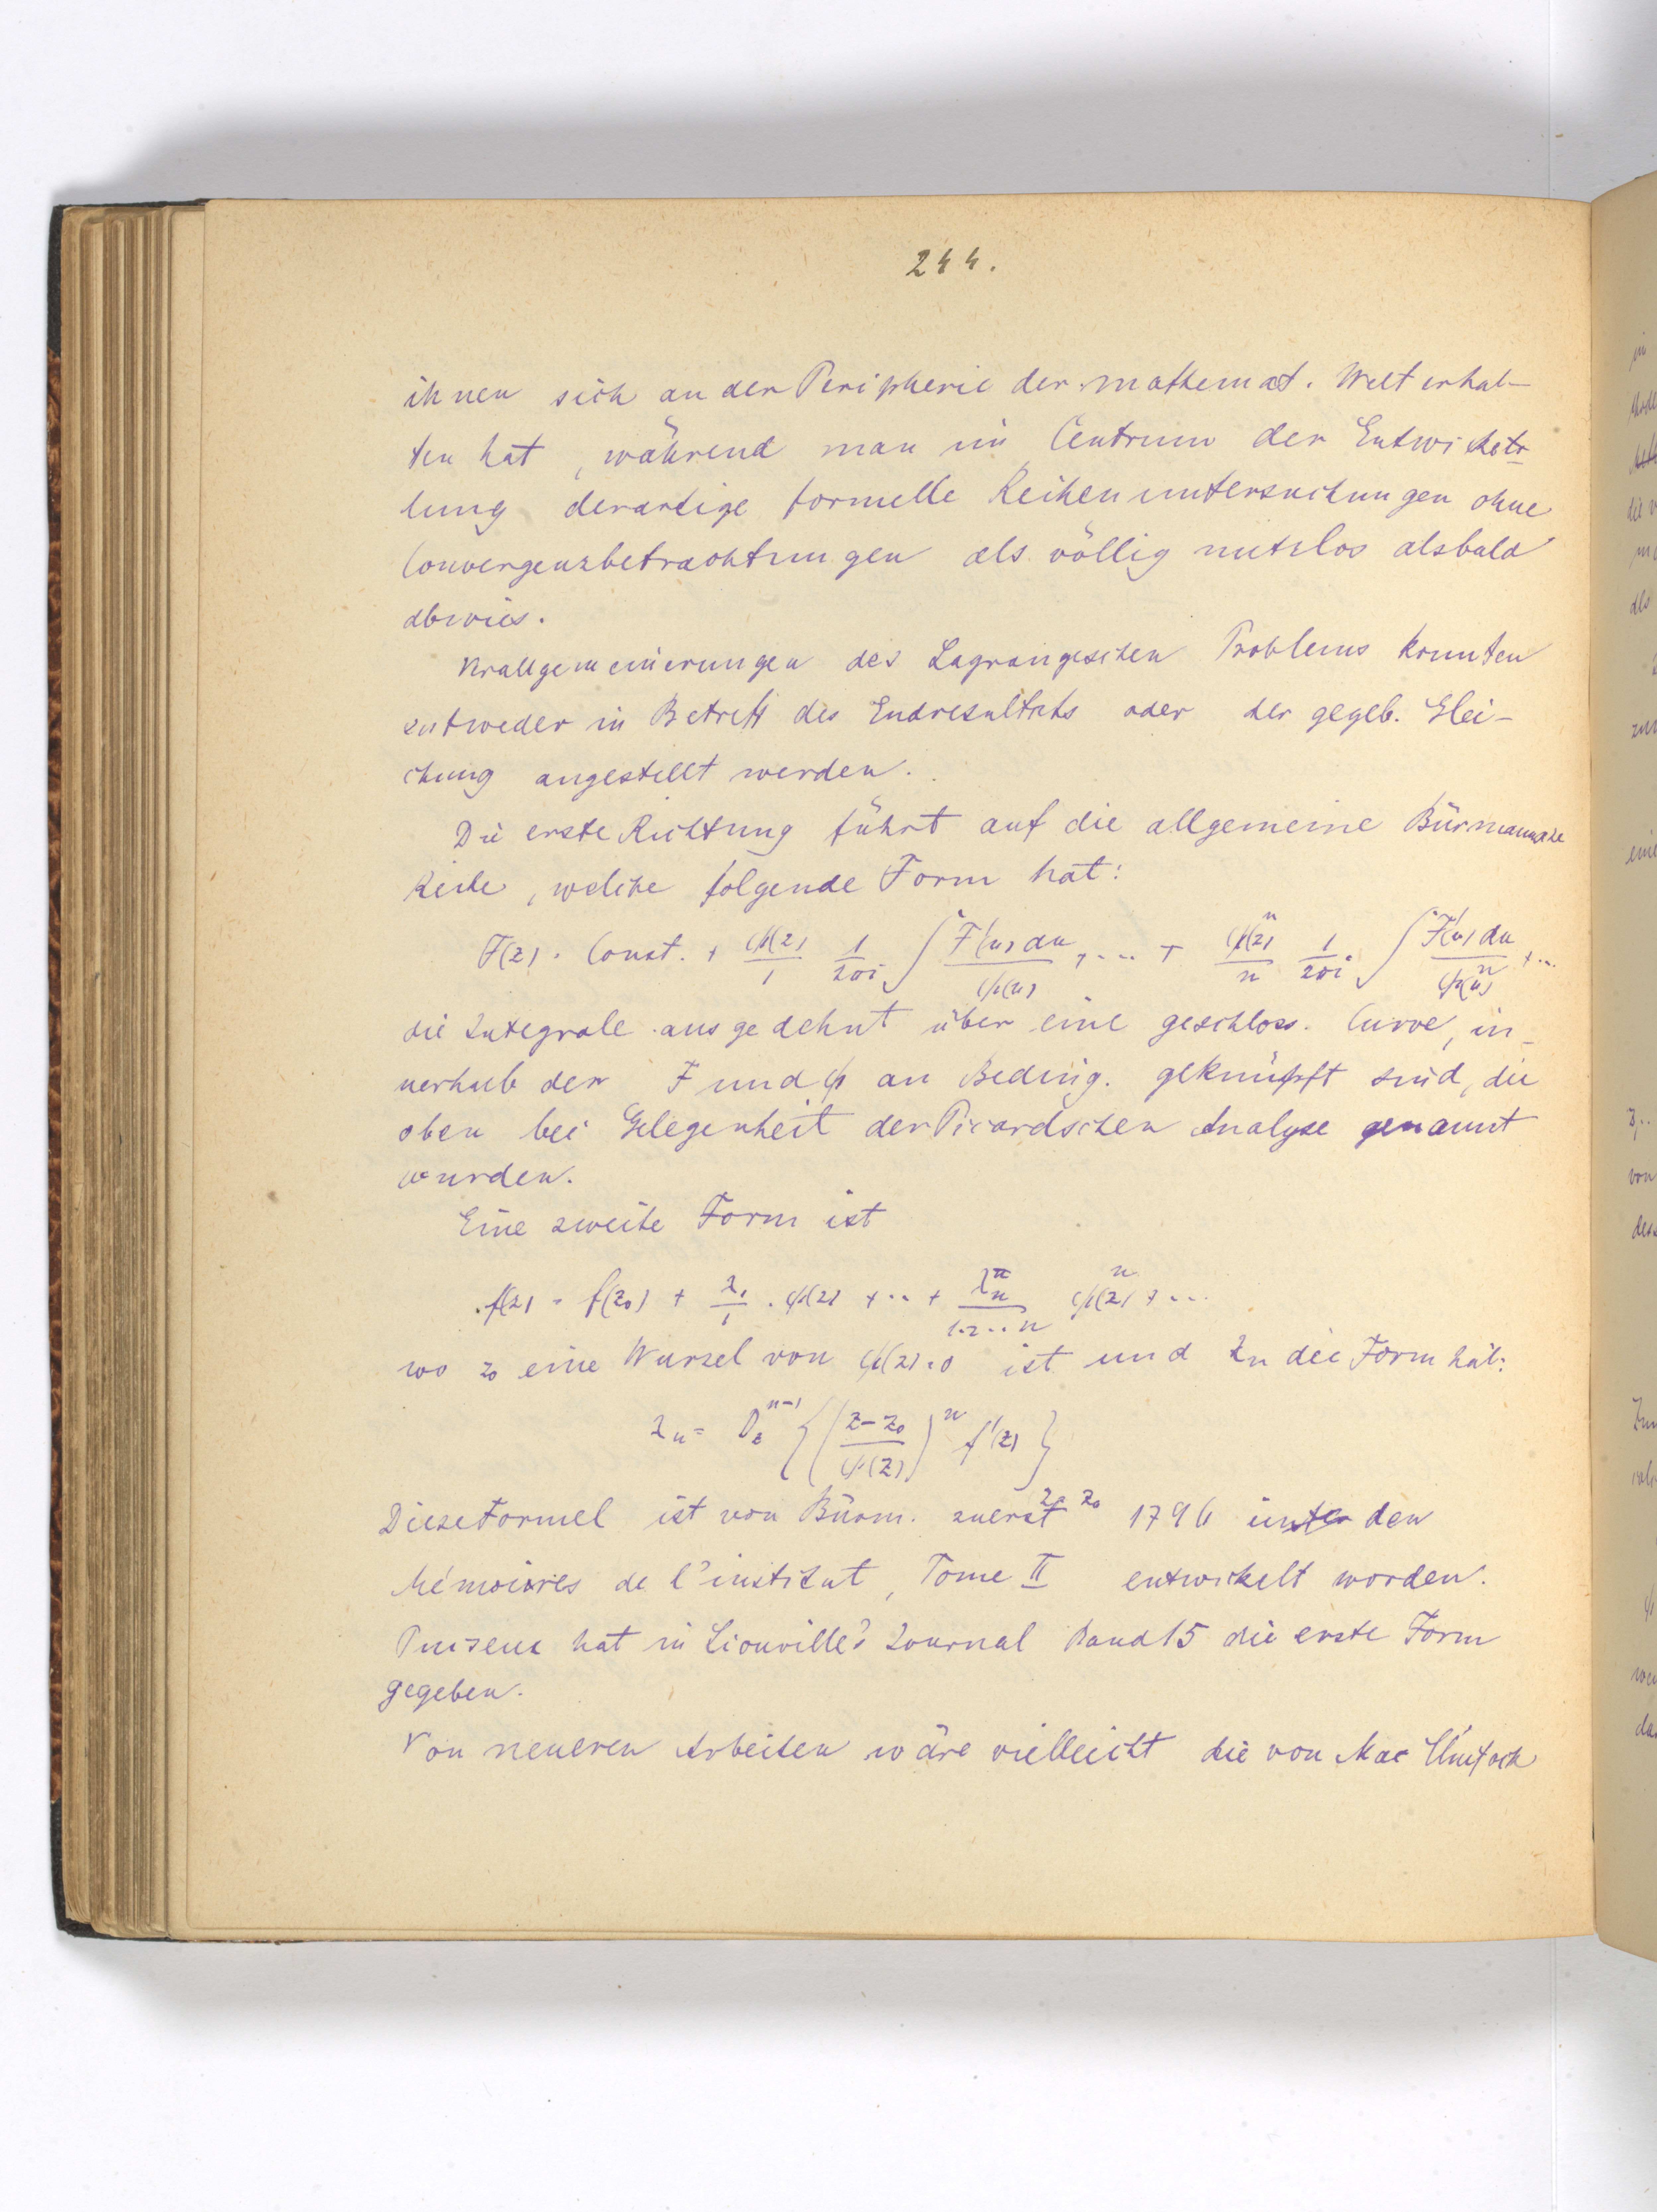 244.
ihnen sich an der Peripherie der mathemat. Welt erhal-
ten hat, während man im Centrum der Entwicke
lung derartige formelle Reihenuntersuchungen ohne
Convergenzbetrachtungen als völlig nutzlos alsbald
abwies.
Verallgemeinerungen des Lagrangeschen Problems konnten
entweder in Betreff des Endresultats oder der gegeb. Glei-
chung angestellt werden.
Die erste Richtung führt auf die allgemeine Bürmannsche
Reihe, welche folgende Form hat:
F(z) = Const. + φ(z)/1 1/2πi ∫ F'(u) du/φ(u) + ... + φⁿ(z)/n 1/2πi ∫ F'(u) du/φⁿ(u) + ...
die Integrale ausgedehnt über eine geschloss. Curve, in-
nerhalb der F und φ an Beding. geknüpft sind, die
oben bei Gelegenheit der Picardschen Analyse genannt
wurden.
Eine zweite Form ist
f(z) = f(z₀) + λ₁/1 . φ(z) + .. + λₙ/1.2...n φⁿ(z) + ...
wo z₀ eine Wurzel von φ(z)=0 ist und λₙ die Form hat:
λₙ = D_z^{n-1} {((z-z₀)/φ(z))ⁿ f'(z)}
z = z₀
Diese Formel ist von Bürm. zuerst 1796 in den
Mémoires de l'institut, Tome II entwickelt worden.
Puiseux hat in Liouville's Journal Band 15 die erste Form
gegeben.
Von neueren Arbeiten wäre vielleicht die von Mac